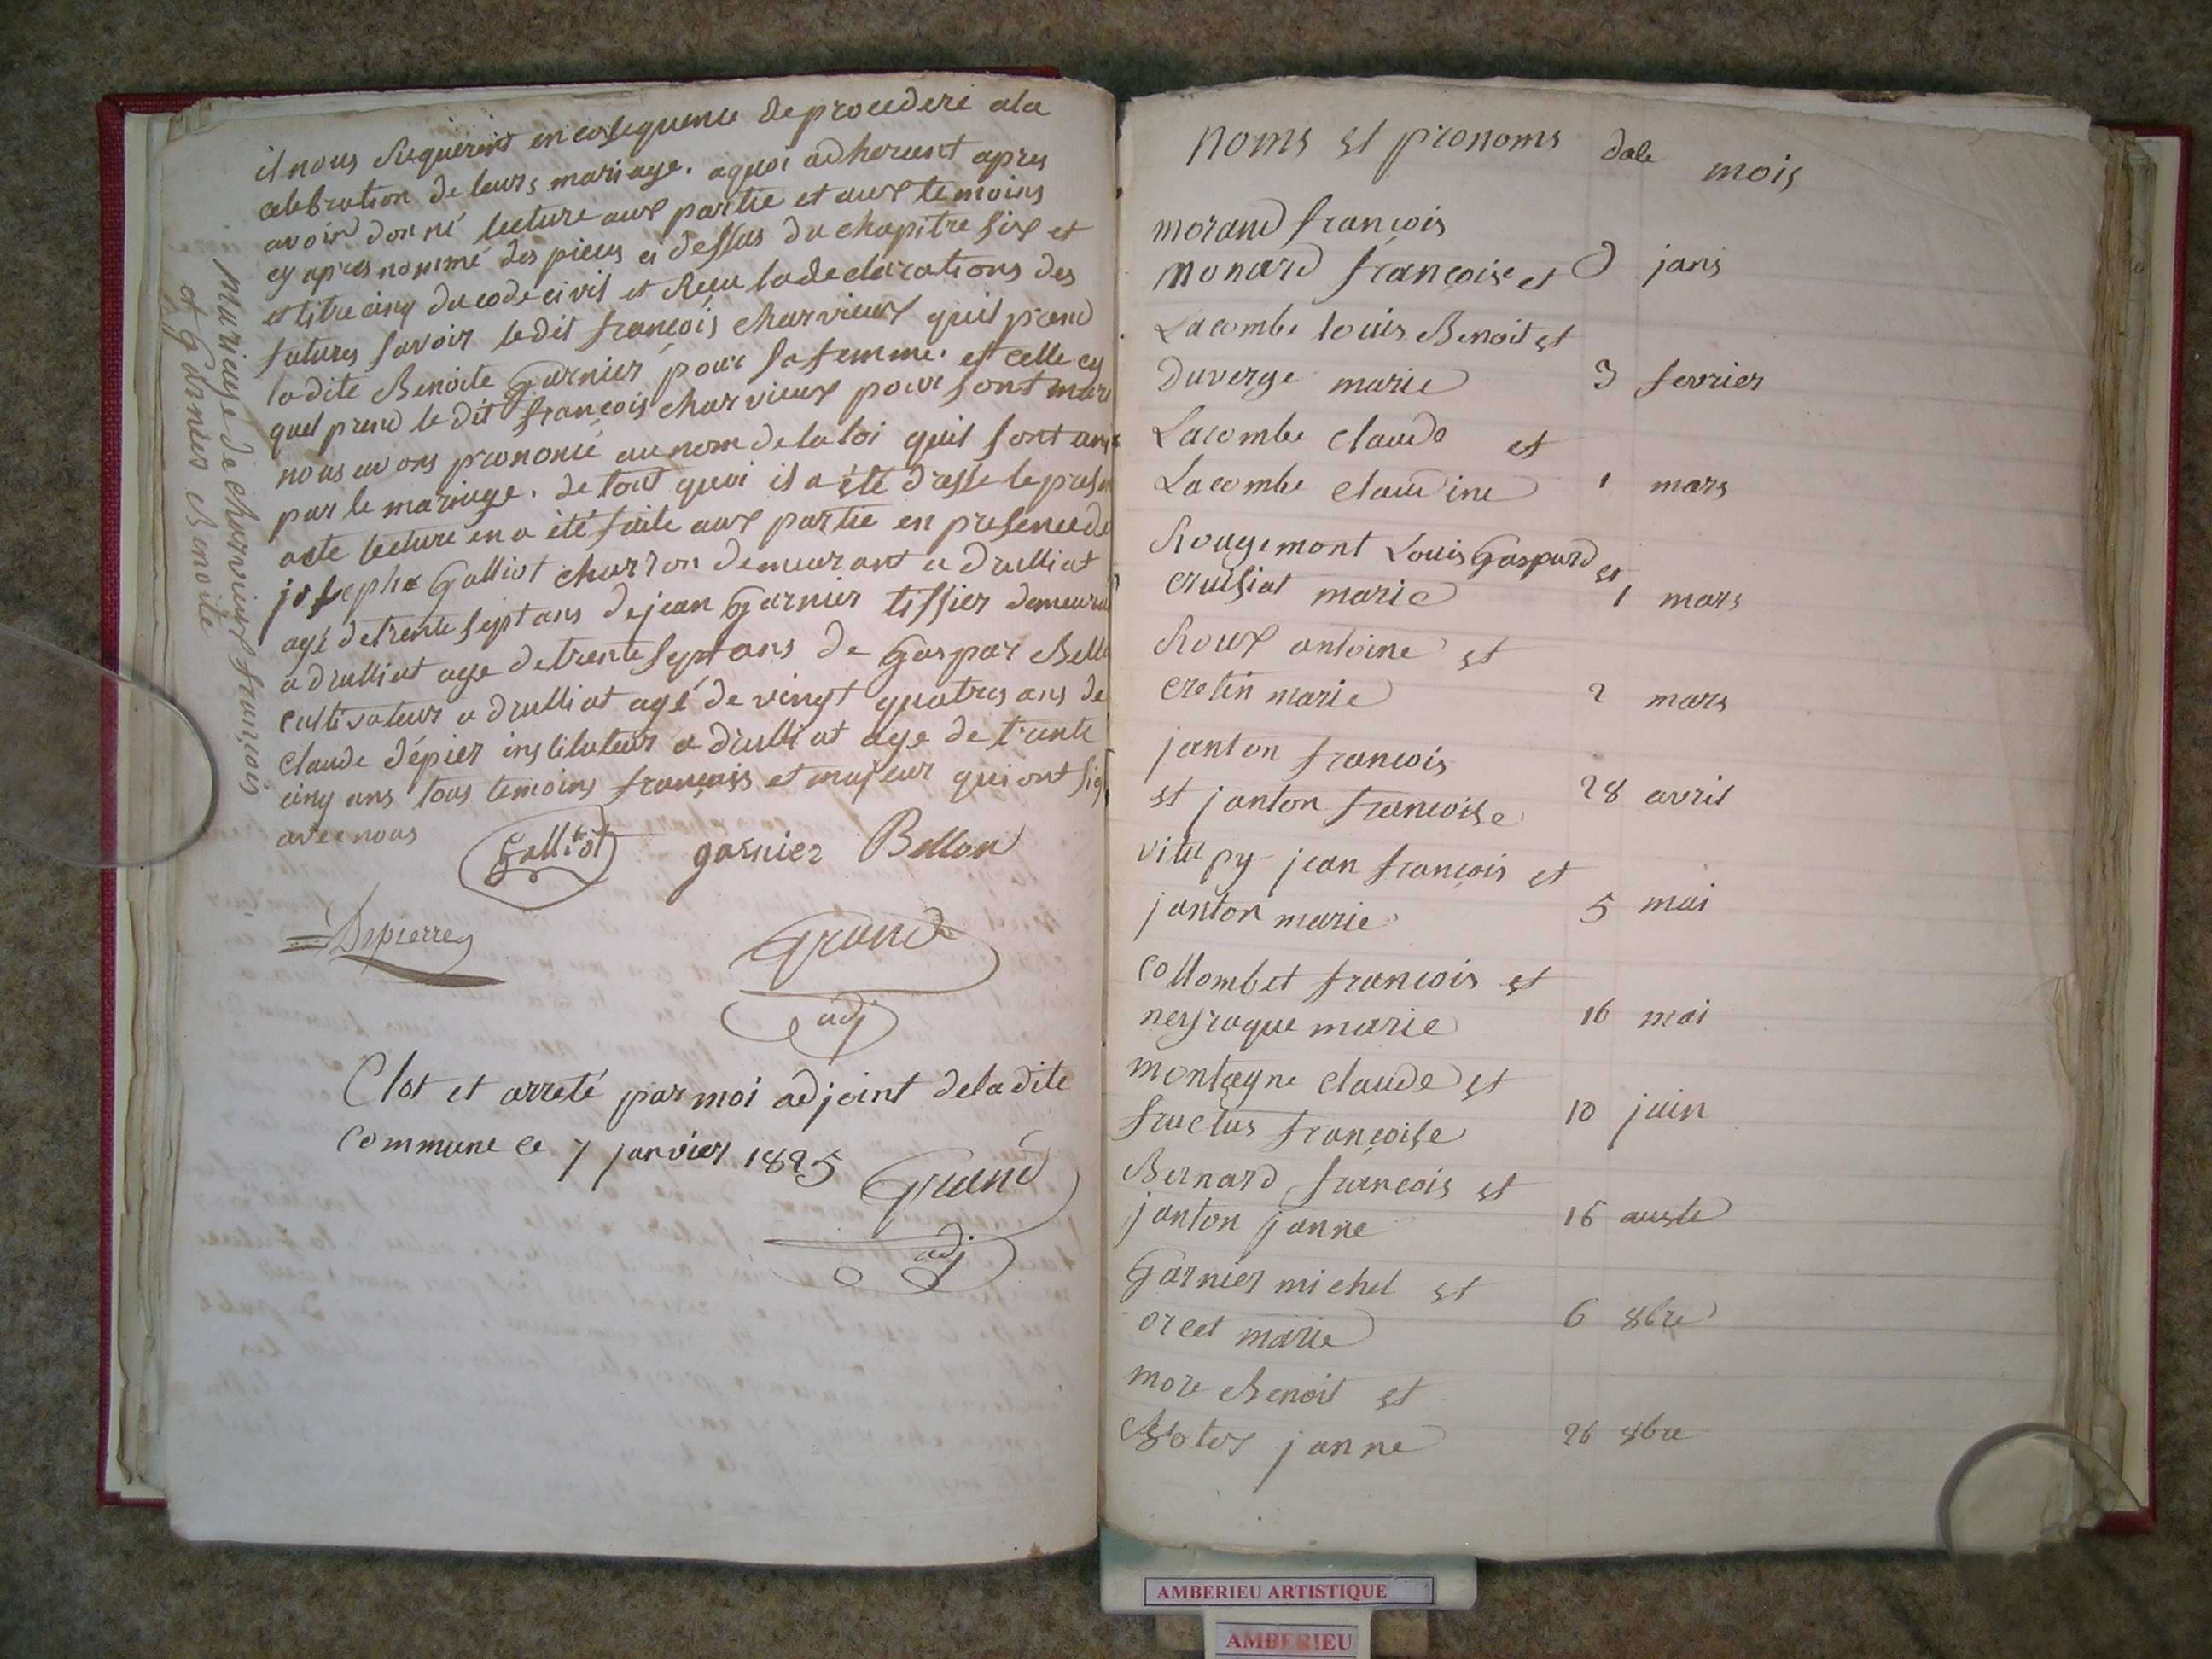 il nous Requerent en consequence de procedere a la
celebration de leurs mariage. a quoi adherent apres
avoir donné lecture aux partie et aux temoins
cy apres nommé des pieces ci dessus du chapitre six et
et titre cinq du code civil et Recu la declarations des
futures savoir ledit françois charvieux quil prend
ladite Benoite Garnier pour sa femme. et celle cy
quel prend le dit françois charvieux pour sont mari
nous avons prononcé au nom de la loi quil sont unis
par le mariage. de tout quoi il a été dressé le presen
acte lecture en a été faite aux partie en presence de
josephe Galliot charron demeurant a druilliat
agé de trente sept ans de jean Garnier tissier demeurant
a druilliat age de trente sept ans de Gaspar Bello
cultivateur a druilliat agé de vingt quatres ans de
claude dépier instituteur a druilliat age de trente
cinq ans tous temoins français et majeur qui ont sig
avec nous
Galliot garnier Bellon
Depierre Grand
adj
Clos et arreté par moi adjoint de la dite
Commune ce 7 janvier 1825
Grand
adj
Mariage de charvieux françois
et Garnier Benoite
noms et pronoms date mois
morand françois
monard françoise et 3 janv
Lacombe louis Benoit et
duverge marie 3 fevrier
Lacombe claude et
Lacombe claudine 1 mars
Rougemont Louis Gaspard et
cruisiat marie 1 mars
Roux antoine et
cretin marie 2 mars
janton françois
et janton françoise 28 avril
vitupy jean françois et
janton marie 5 mai
Collombet françois et
neyraque marie 16 mai
montagne claude et
fructus françoise 10 juin
Bernard françois et
janton janne 16 auste
Garnier michel et
orcet marie 6 8bre
more Benoit et
janne 26 8bre
AMBERIEU ARTISTIQUE
AMBERIEU